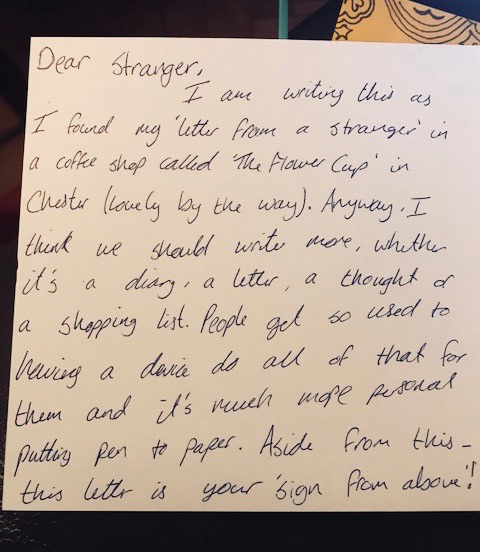 Dear Stranger,
I am writing this as
I found my 'letter from a stranger' in
a coffee shop called 'The Flower Cup' in
Chester (lovely by the way). Anyway, I
think we should write more, whether
it's a diary, a letter, a thought or
a shopping list. People get so used to
having a device do all of that for
them and it's much more personal
putting pen to paper. Aside from this -
this letter is your 'sign from above'!